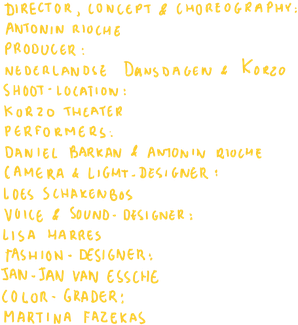 DIRECTOR, CONCEPT & CHOREOGRAPHY:
ANTONIN RIOCHE
PRODUCER:
NEDERLANDSE DANSDAGEN & KORZO
SHOOT-LOCATION:
KORZO THEATER
PERFORMERS:
DANIEL BARKAN & ANTONIN RIOCHE
CAMERA & LIGHT-DESIGNER:
LOES SCHAKENBOS
VOICE & SOUND-DESIGNER:
LISA HARRES
FASHION-DESIGNER:
JAN-JAN VAN ESSCHE
COLOR-GRADER:
MARTINA FAZEKAS